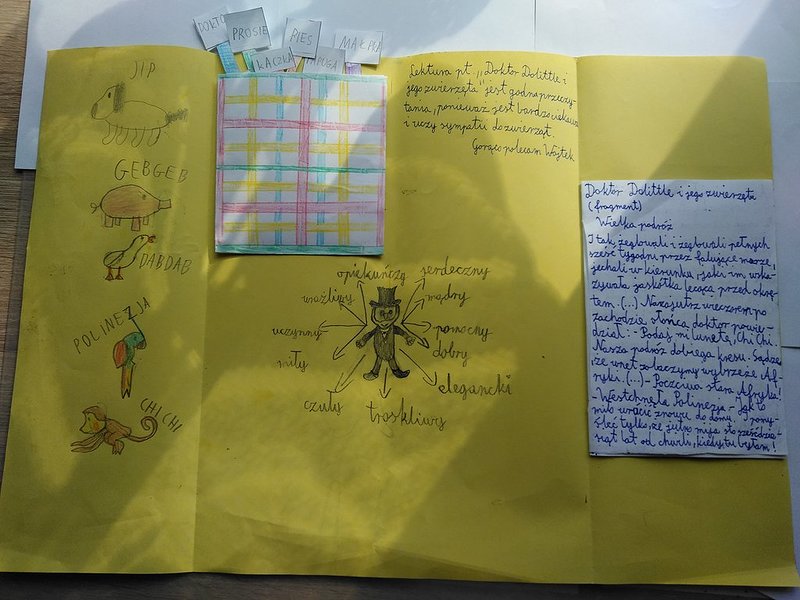 DOKTO
PROSIE
PIES
MAŁPKA
KACZKA
PAPUGA
JIP
GEBGEB
DABDAB
POLINEZJA
CHICHI
Lektura pt. ,,Doktor Dolittle i
jego zwierzęta" jest godna przeczy-
tania, ponieważ jest bardzo ciekawa
i uczy sympatii do zwierząt.
Gorąco polecam Wojtek
opiekuńczy
serdeczny
wrażliwy
mądry
uczynny
pomocny
miły
dobry
elegancki
czuły
troskliwy
Doktor Dolittle i jego zwierzęta
(fragment)
Wielka podróż
I tak, żeglowali i żeglowali pełnych
sześć tygodni, przez falujące morze,
jechali w kierunku, jaki im wska-
zywała jaskółka lecąca przed okrę-
tem. (...) Nazajutrz wieczorem po
zachodzie słońca doktor powie-
dział: - Podaj mi lunetę, Chi Chi
Nasza podróż dobiega kresu. Sądzę
że wnet zobaczymy wybrzeże Af-
ryki. (...) - Poczciwa stara Afryka!
- Westchnęła Polinezja - Jak to
miło wrócić znowu do domu. I pomy-
śleć tylko, że jutro mija sto sześćdzie-
siąt lat od chwili, kiedy tu byłam!